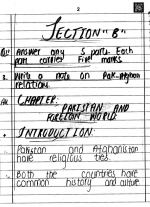 2
SECTION "B"
Answer any 5 parts. Each
part carries five marks.
Write a note on Pak-Afghan
relations.
CHAPTER:
PAKISTAN AND
FOREIGN WORLD:
INTRODUCTION:
Pakistan and Afghanistan
have religious ties.
Both the countries have
common history and culture